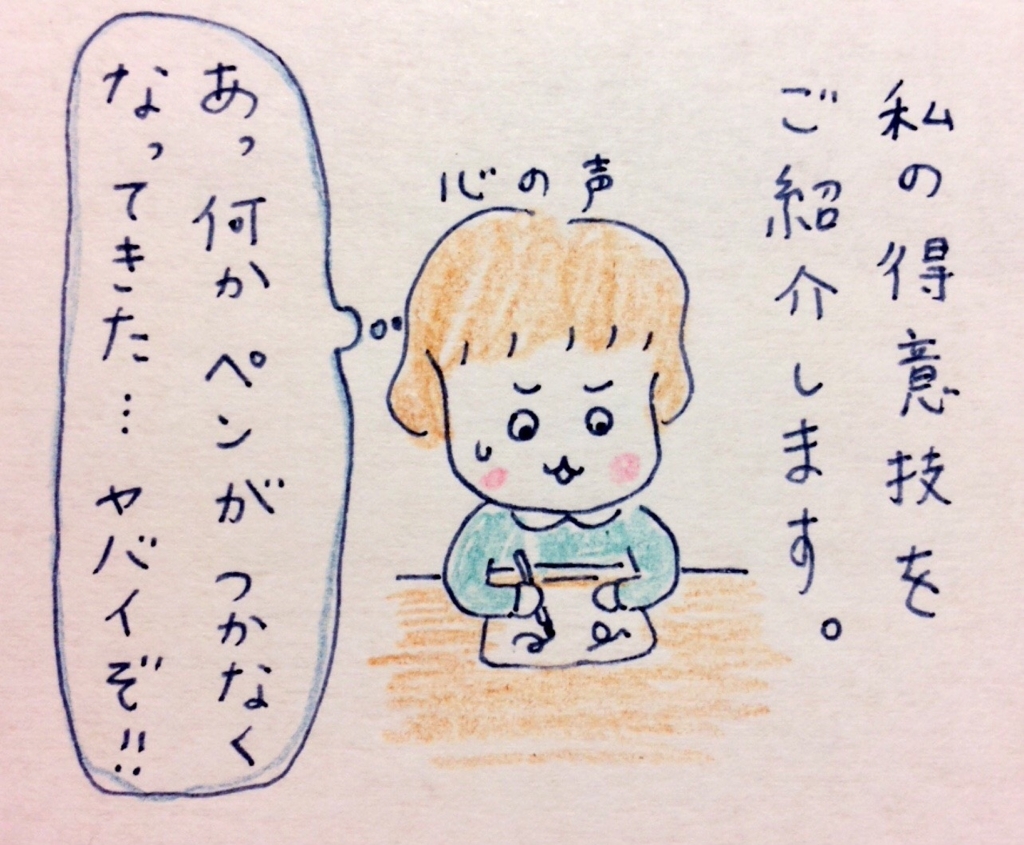 私の得意技を
ご紹介します。
心の声
あっ何かペンがつかなく
なってきた…ヤバイぞ!!